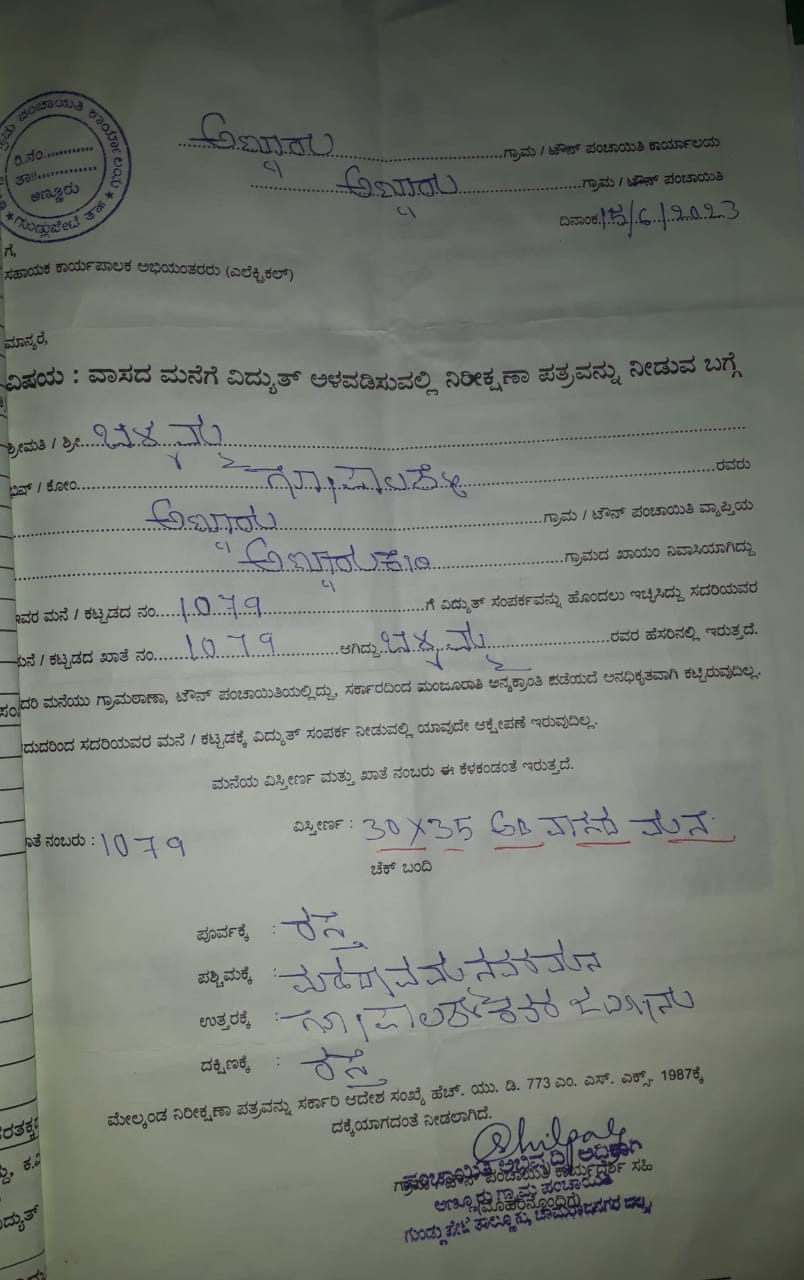 ಗ್ರಾಮ ಪಂಚಾಯಿತಿ ಕಾರ್ಯಾಲಯ
ರಿ.ನಂ............
ತಾ||..............
ಅಣ್ಣೂರು
ಗುಂಡ್ಲುಪೇಟೆ ತಾ||
ಅಣ್ಣೂರು ಗ್ರಾಮ / ಟೌನ್ ಪಂಚಾಯಿತಿ ಕಾರ್ಯಾಲಯ
ಅಣ್ಣೂರು ಗ್ರಾಮ / ಟೌನ್ ಪಂಚಾಯಿತಿ
ದಿನಾಂಕ 15/6/2023
ಗೆ,
ಸಹಾಯಕ ಕಾರ್ಯಪಾಲಕ ಅಭಿಯಂತರರು (ಎಲೆಕ್ಟ್ರಿಕಲ್)
ಮಾನ್ಯರೆ,
ವಿಷಯ : ವಾಸದ ಮನೆಗೆ ವಿದ್ಯುತ್ ಅಳವಡಿಸುವಲ್ಲಿ ನಿರೀಕ್ಷಣಾ ಪತ್ರವನ್ನು ನೀಡುವ ಬಗ್ಗೆ
ಶ್ರೀಮತಿ / ಶ್ರೀ
ಬಿನ್ / ಕೋಂ ಗೋಪಾಲಶೆಟ್ಟಿ ರವರು
ಅಣ್ಣೂರು ಗ್ರಾಮ / ಟೌನ್ ಪಂಚಾಯಿತಿ ವ್ಯಾಪ್ತಿಯ
ಅಣ್ಣೂರುಕೇರಿ ಗ್ರಾಮದ ಖಾಯಂ ನಿವಾಸಿಯಾಗಿದ್ದು
ಇವರ ಮನೆ / ಕಟ್ಟಡದ ನಂ. 1079 ಗೆ ವಿದ್ಯುತ್ ಸಂಪರ್ಕವನ್ನು ಹೊಂದಲು ಇಚ್ಛಿಸಿದ್ದು ಸದರಿಯವರ
ಮನೆ / ಕಟ್ಟಡದ ಖಾತೆ ನಂ. 1079 ಆಗಿದ್ದು ರವರ ಹೆಸರಿನಲ್ಲಿ ಇರುತ್ತದೆ.
ಸದರಿ ಮನೆಯು ಗ್ರಾಮಠಾಣಾ, ಟೌನ್ ಪಂಚಾಯಿತಿಯಲ್ಲಿದ್ದು, ಸರ್ಕಾರದಿಂದ ಮಂಜೂರಾತಿ ಅನ್ಯಕ್ರಾಂತಿ ಪಡೆಯದೆ ಅನಧಿಕೃತವಾಗಿ ಕಟ್ಟಿರುವುದಿಲ್ಲ.
ಆದುದರಿಂದ ಸದರಿಯವರ ಮನೆ / ಕಟ್ಟಡಕ್ಕೆ ವಿದ್ಯುತ್ ಸಂಪರ್ಕ ನೀಡುವಲ್ಲಿ ಯಾವುದೇ ಆಕ್ಷೇಪಣೆ ಇರುವುದಿಲ್ಲ.
ಮನೆಯ ವಿಸ್ತೀರ್ಣ ಮತ್ತು ಖಾತೆ ನಂಬರು ಈ ಕೆಳಕಂಡಂತೆ ಇರುತ್ತದೆ.
ಖಾತೆ ನಂಬರು : 1079 ವಿಸ್ತೀರ್ಣ : 30 X 35 ವಾಸದ ಮನೆ
ಚೆಕ್ ಬಂದಿ
ಪೂರ್ವಕ್ಕೆ : ರಸ್ತೆ
ಪಶ್ಚಿಮಕ್ಕೆ : ಮನೆ
ಉತ್ತರಕ್ಕೆ : ಗೋಪಾಲಶೆಟ್ಟಿರವರ ಜಮೀನು
ದಕ್ಷಿಣಕ್ಕೆ : ರಸ್ತೆ
ಮೇಲ್ಕಂಡ ನಿರೀಕ್ಷಣಾ ಪತ್ರವನ್ನು ಸರ್ಕಾರಿ ಆದೇಶ ಸಂಖ್ಯೆ ಹೆಚ್. ಯು. ಡಿ. 773 ಎಂ. ಎಸ್. ಎಕ್ಸ್. 1987ಕ್ಕೆ
ದಕ್ಕೆಯಾಗದಂತೆ ನೀಡಲಾಗಿದೆ.
ಪಂಚಾಯಿತಿ ಅಭಿವೃದ್ಧಿ ಅಧಿಕಾರಿ
ಗ್ರಾಮ / ಟೌನ್ ಪಂಚಾಯಿತಿ ಕಾರ್ಯದರ್ಶಿ ಸಹಿ
ಅಣ್ಣೂರು ಗ್ರಾಮ ಪಂಚಾಯಿತಿ
(ಮೊಹರಿನೊಂದಿಗೆ)
ಗುಂಡ್ಲುಪೇಟೆ ತಾಲ್ಲೂಕು, ಚಾಮರಾಜನಗರ ಜಿಲ್ಲೆ